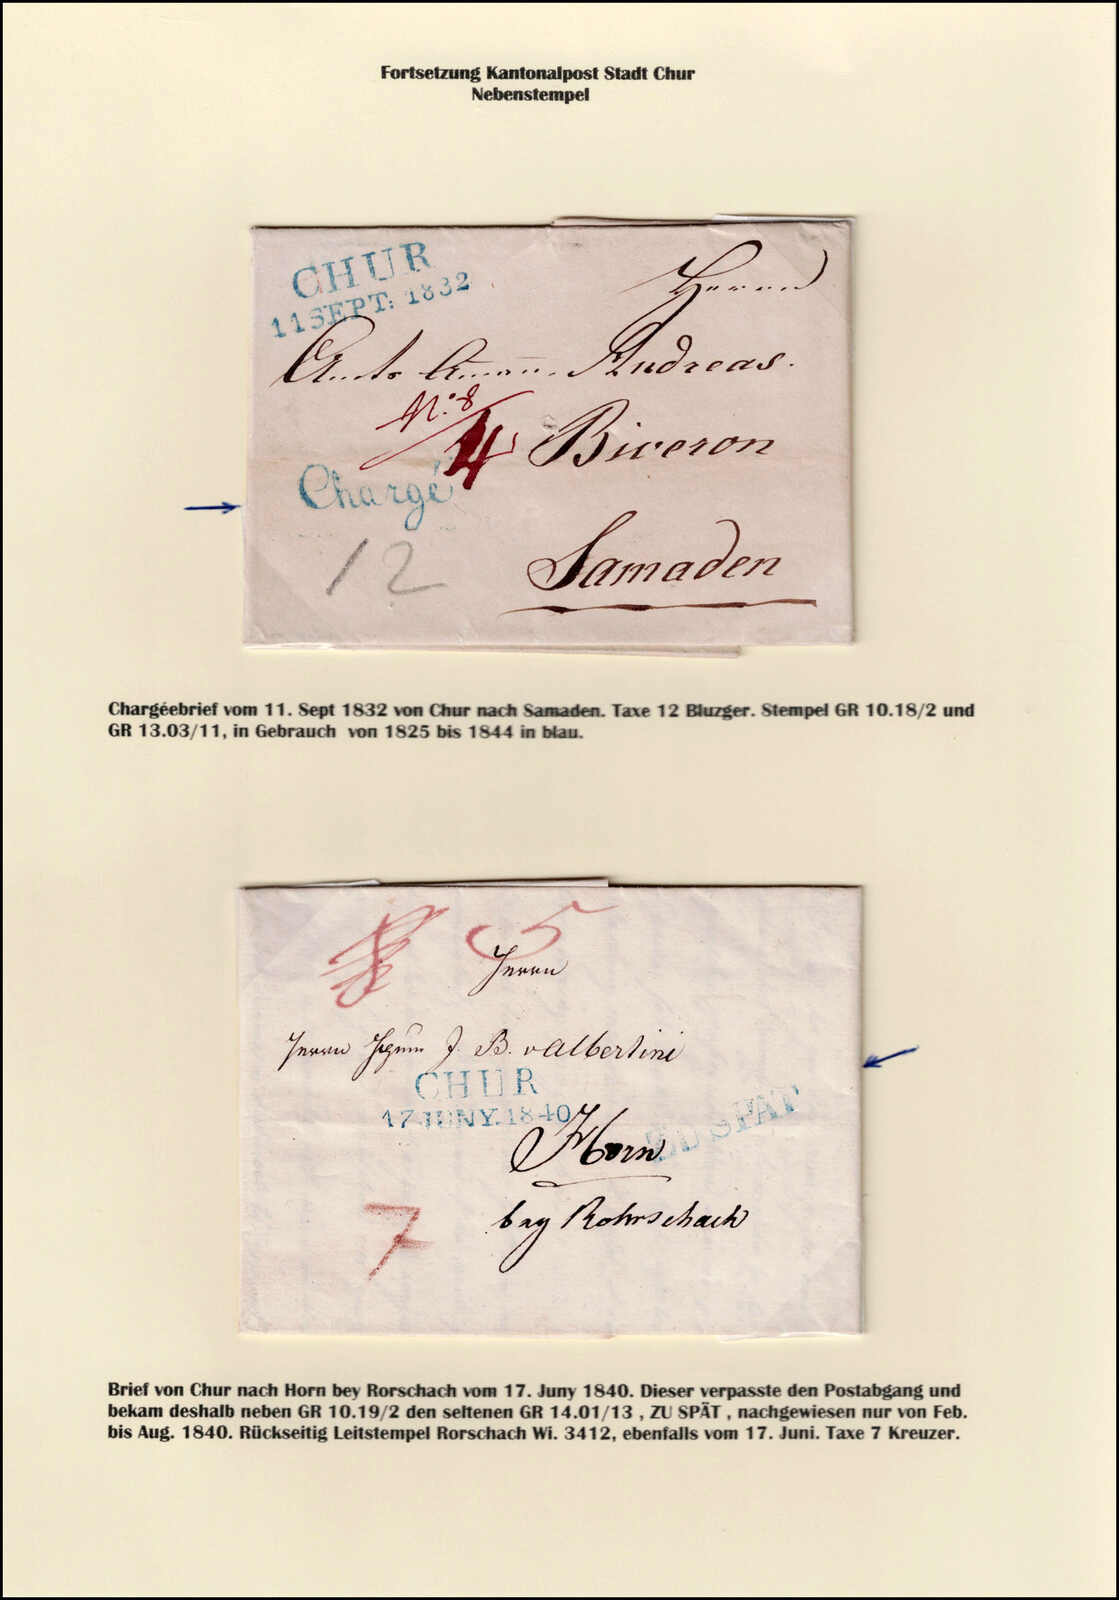 Fortsetzung Kantonalpost Stadt Chur
Nebenstempel
CHUR
11 SEPT: 1832
Herrn
Amts Andreas.
No. 8
4
Biveron
Chargé
Samaden
12
Chargéebrief vom 11. Sept 1832 von Chur nach Samaden. Taxe 12 Bluzger. Stempel GR 10.18/2 und
GR 13.03/11, in Gebrauch von 1825 bis 1844 in blau.
5
Herrn
Herrn J. B. v Albertini
CHUR
17 JUNY. 1840
ZU SPÄT
Horn
bey Rohrschach
7
Brief von Chur nach Horn bey Rorschach vom 17. Juny 1840. Dieser verpasste den Postabgang und
bekam deshalb neben GR 10.19/2 den seltenen GR 14.01/13 , ZU SPÄT , nachgewiesen nur von Feb.
bis Aug. 1840. Rückseitig Leitstempel Rorschach Wi. 3412, ebenfalls vom 17. Juni. Taxe 7 Kreuzer.